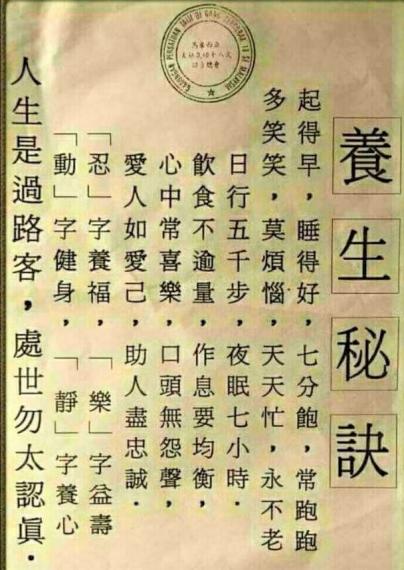 養生秘訣
起得早，睡得好，七分飽，常跑跑
多笑笑，莫煩惱，天天忙，永不老
日行五千步，夜眠七小時．
飲食不逾量，作息要均衡，
心中常喜樂，口頭無怨聲，
愛人如愛己，助人盡忠誠．
「忍」字養福，「樂」字益壽
「動」字健身，「靜」字養心
人生是過路客，處世勿太認眞．
GABUNGAN PERSATUAN MALAYSIA